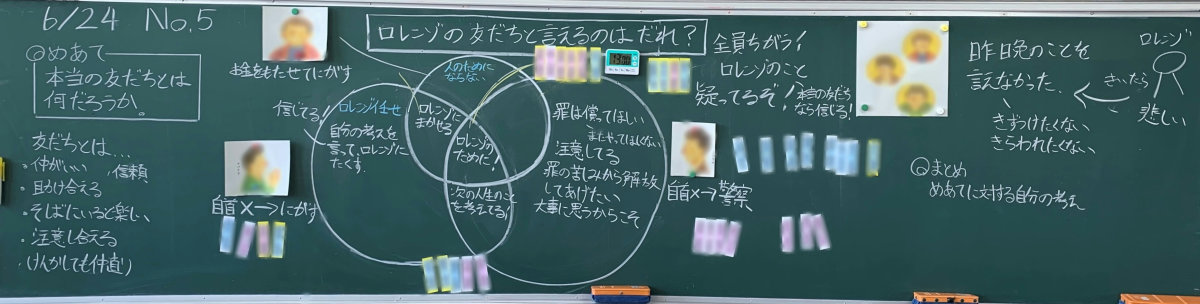 6/24 No.5
めあて
本当の友だちとは
何だろうか。
友だちとは…
・仲がいい ・信頼
・助け合える
・そばにいると楽しい
・注意し合える
・(けんかしても仲直り)
ロレンゾの友だちと言えるのはだれ?
お金をもたせてにがす
人のために
ならない
信じてる!
ロレンゾ任せ
自分の考えを
言って、ロレンゾに
たくす。
自首×→にがす
ロレンゾに
まかせる
ロレンゾの
ために!
次の人生のこと
を考えてる!
罪は償ってほしい
またやってほしくない
注意してる
罪の苦しみから解放
してあげたい
大事に思うからこそ
自首×→警察
全員ちがう!
ロレンゾのこと
疑ってるぞ!
本当の友だち
なら信じる!
昨晩のことを
言えなかった。
きずつけたくない
きらわれたくない
きいたら
ロレンゾ
悲しい
まとめ
めあてに対する自分の考え